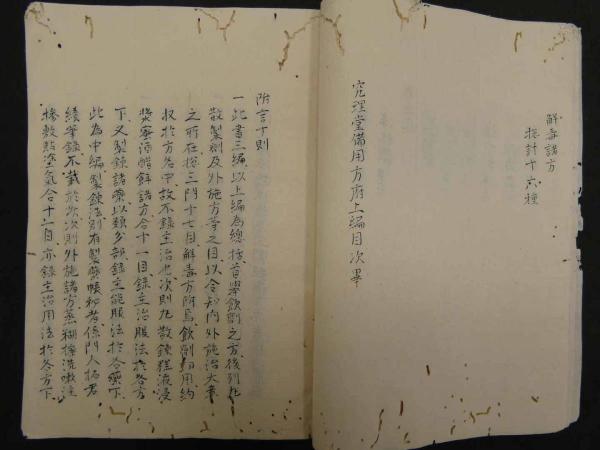 解毒諸方
総計十六種
究理堂備用方府上編目次畢
附言十則
一此書三編以上編為總括首舉飲劑之方後列丸
散製劑及外施方等之目以令知内外施治大章
之所在捴三門十七目解毒方附焉飲劑日用約
收於方名中故不錄主治也次則丸散錠釋液浸
漿蜜酒醋餅諸方合十一目錄主治服法於各方
下又製鍊諸藥以類分部錄主能服法於各藥下
此為中編製鍊法別有製藥帳秘考係門人拓君
績筆錄不載於此次則外施諸方蒸糊擦洗嗽注
捲敷貼塗氣合十二目亦錄主治用法於各方下